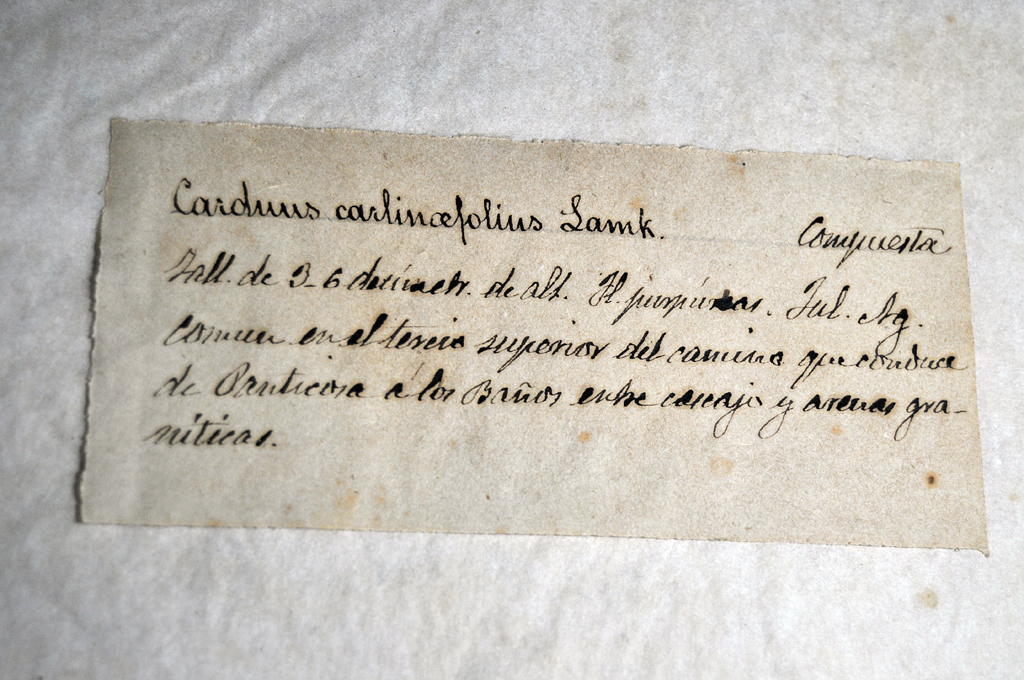 Carduus carlinæfolius Lamk. Compuesta
Tall. de 3-6 decímetr. de alt. Fl. purpúreas. Jul. Ag.
Comun en el tercio superior del camino que conduce
de Panticosa á los Baños entre cascajo y arenas gra-
níticas.